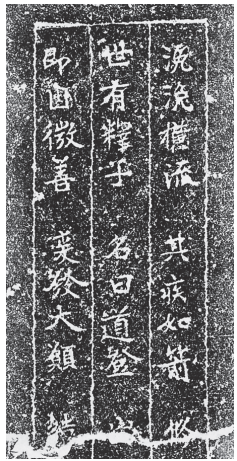 浼浼横流 其疾如箭
世有釋子 名曰道登
即因微善 爰發大願